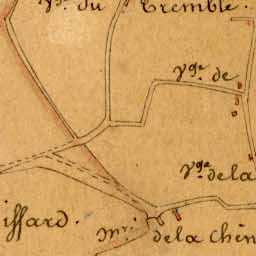 Vge du Tremble.
Vge de
Vge de la
iffard.
Mn de la Chên